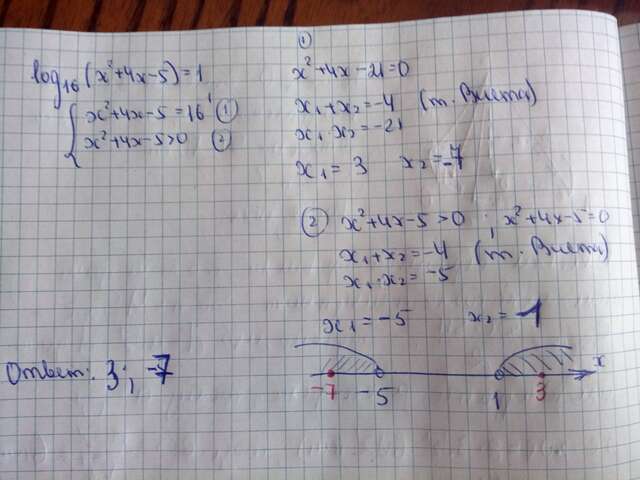 log₁₆(x²+4x-5)=1
{ x²+4x-5=16¹ ①
x²+4x-5>0 ②
①
x²+4x-21=0
x₁+x₂=-4 (т. Виета)
x₁ x₂=-21
x₁=3 x₂=-7
② x²+4x-5>0 ; x²+4x-5=0
x₁+x₂=-4 (т. Виета)
x₁·x₂=-5
x₁=-5 x₂=1
Ответ: 3; -7
-7 -5 1 3 x